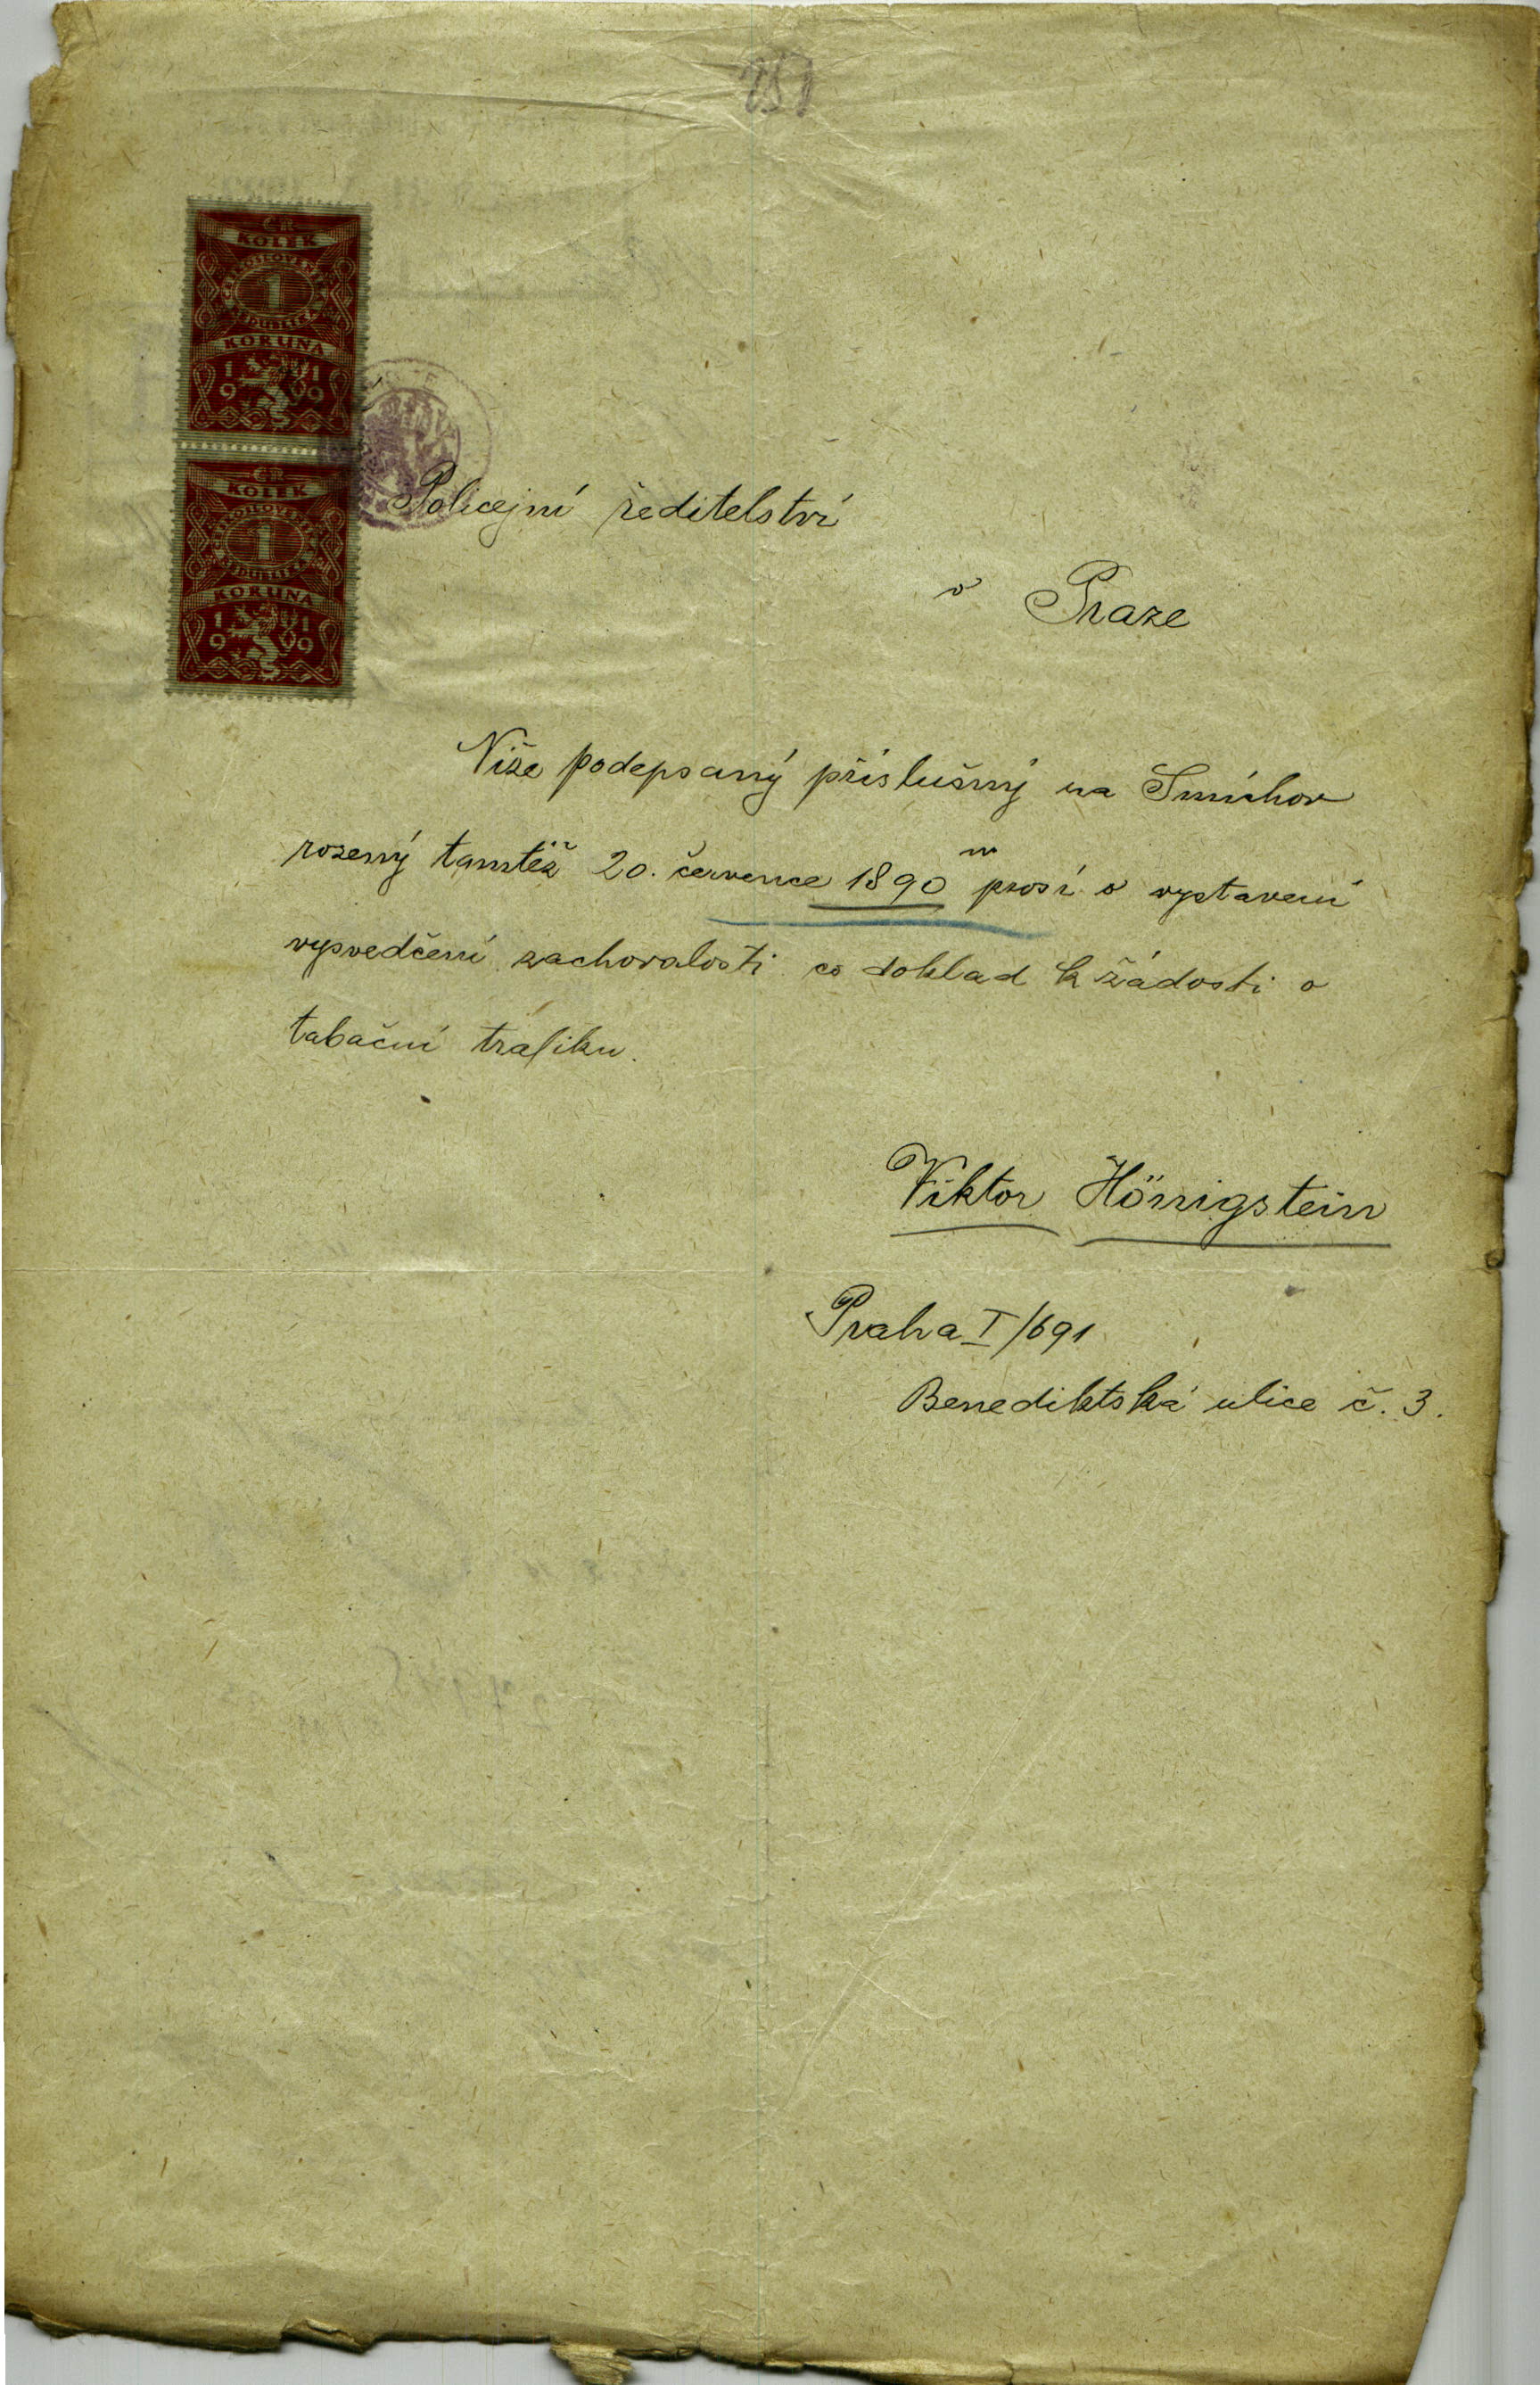 751
ČR
KOLEK
1
KORUNA
1919
ČR
KOLEK
1
KORUNA
1919
Policejní ředitelství
v Praze
Níže podepsaný příslušný na Smíchov
rozený tamtéž 20. července 1890 prosí o vystavení
vysvedčení zachovalosti co doklad k žádosti o
tabační trafiku.
Viktor Hönigstein
Praha I/691
Benediktská ulice č. 3.